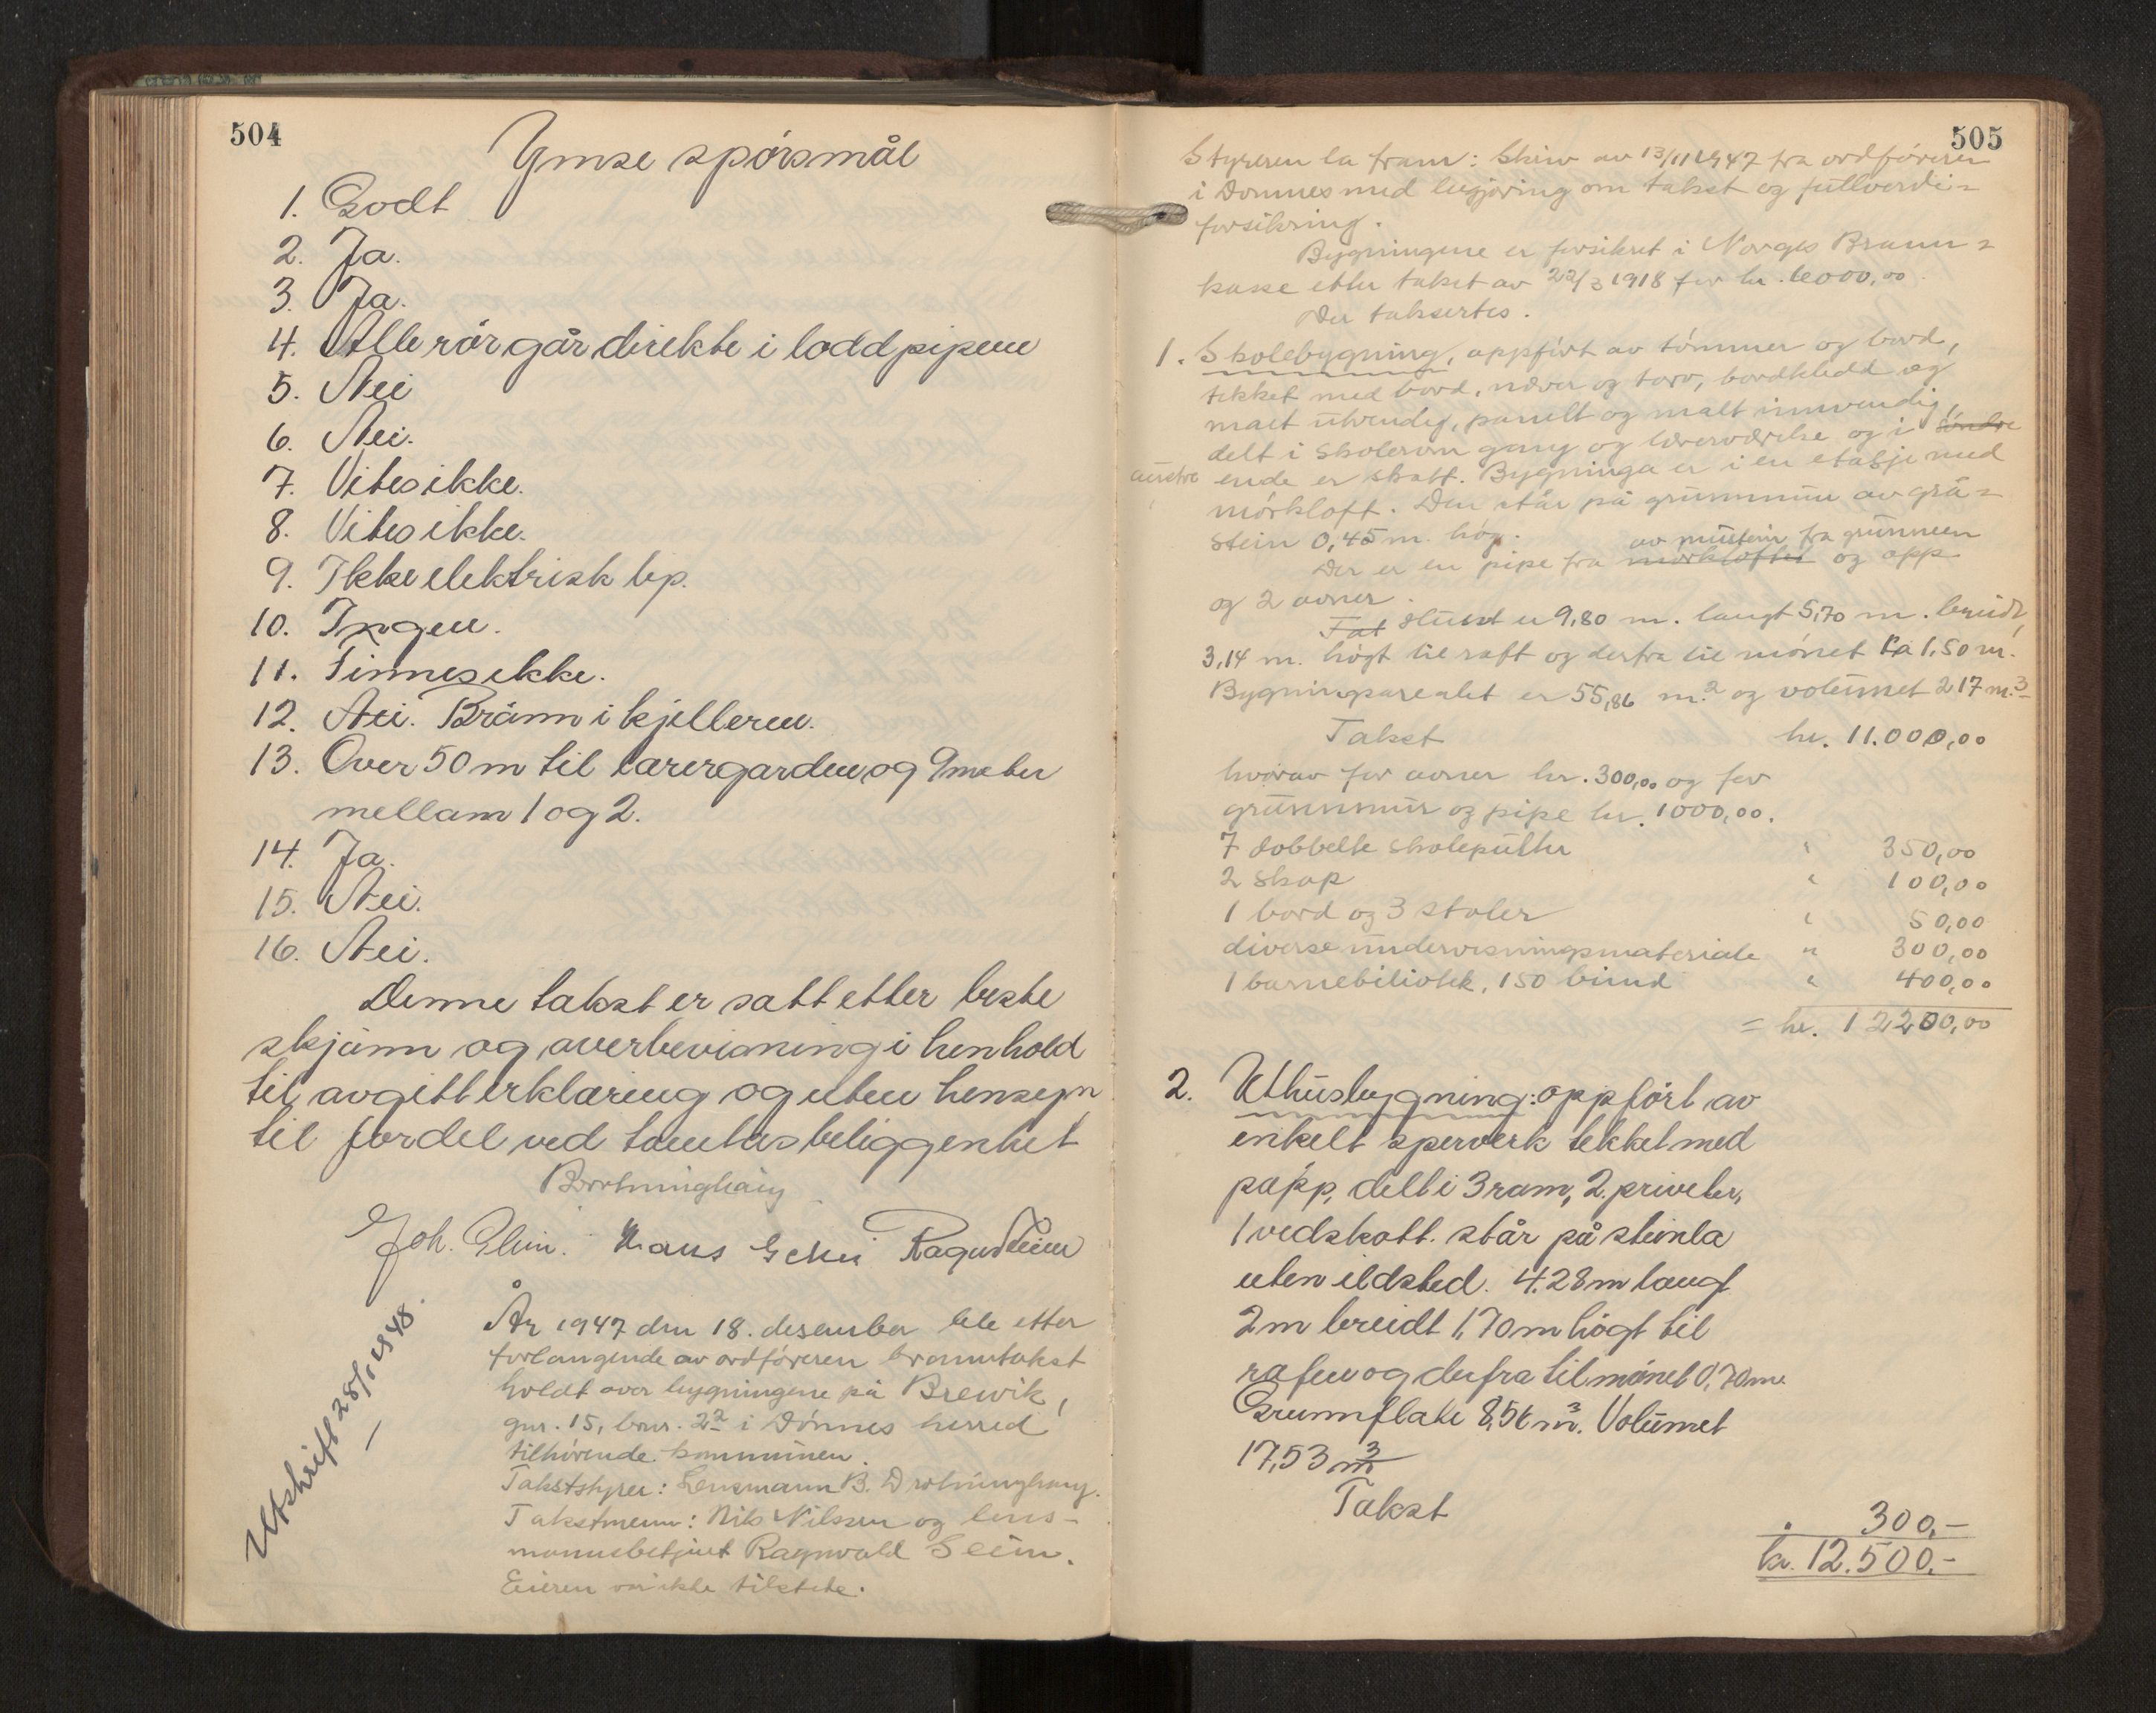 504
Ymse spørsmål
1. Godt
2. Ja.
3. Ja.
4. Alle rör går direkte i loddpipene
5. Nei
6. Nei.
7. Vites ikke.
8. Vites ikke.
9. Ikke elektrisk lys.
10. Ingen.
11. Finnes ikke.
12. Nei. Brönn i kjelleren.
13. Over 50 m til lærergarden og 9 meter
mellam 1 og 2.
14. Ja.
15. Nei.
16. Nei.
Denne takst er satt etter beste
skjönn og overbevisning i henhold
til avgitt erklæring og uten hensyn
til fordel ved tomtas beliggenhet
Joh. Glein. Hans Ragnv Seim
Utskrift 28/1 1948.
År 1947 den 18. desember ble etter
forlangende av ordföreren branntakst
holdt over bygningene på Breivik,
gnr. 15, bnr. 22 i Dönnes herred
tilhörende kommunen.
Takststyrer: Lensmann B. Drotninghaug.
Takstmenn: Nils Nilssen og lens-
mannsbetjent Ragnvald Seim.
Eieren var ikke tilstede.
505
Styreren la fram: Skriv av 13/11 1947 fra ordföreren
i Dönnes med begjæring om takst og fullverdi=
forsikring.
Bygningene er forsikret i Norges Brann=
kasse etter takst av 22/3 1918 for kr. 6000,00.
Der taksertes.
1. Skolebygning, oppfört av tömmer og bord,
tekket med bord, never og torv, bordkledd og
malt utvendig, panelt og malt innvendig,
delt i skolerom gang og lærerværelse og i söndre
austre ende er skott. Bygninga er i en etasje med
mörkloft. Den står på grunnmur av grå=
stein 0,45 m. hög.
av murstein fra grunnen
Der er en pipe fra mörkloftet og opp
og 2 ovner.
Tat Huset er 9,80 m. langt 5,70 m. breidt,
3,14 m. högt til raft og derfra til mönet ca 1,50 m.
Bygningsarealet er 55,86 m.2 og volumet 217 m.3
Takst kr. 11.000,00
hvorav for ovner kr. 300,00 og for
grunnmur og pipe kr. 1000,00.
7 dobbelte skolepulter " 350,00
2 skap " 100,00
1 bord og 3 stoler " 50,00
diverse undervisningsmateriale " 300,00
1 barnebiliotek, 150 bind " 400,00
= kr. 12200,00
2. Uthusbygning: oppfört av
enkelt sperverk tekket med
papp, delt i 3 rom, 2. priveter,
1 vedskott. står på steinla
uten ildsted. 4.28 m langt
2 m breidt 1,70 m högt til
rafen og derfra til mönet 0,70 m.
Grunnflate 8,56 m3. Volumet
17,53 m3
Takst
" 300,-
kr. 12.500.-